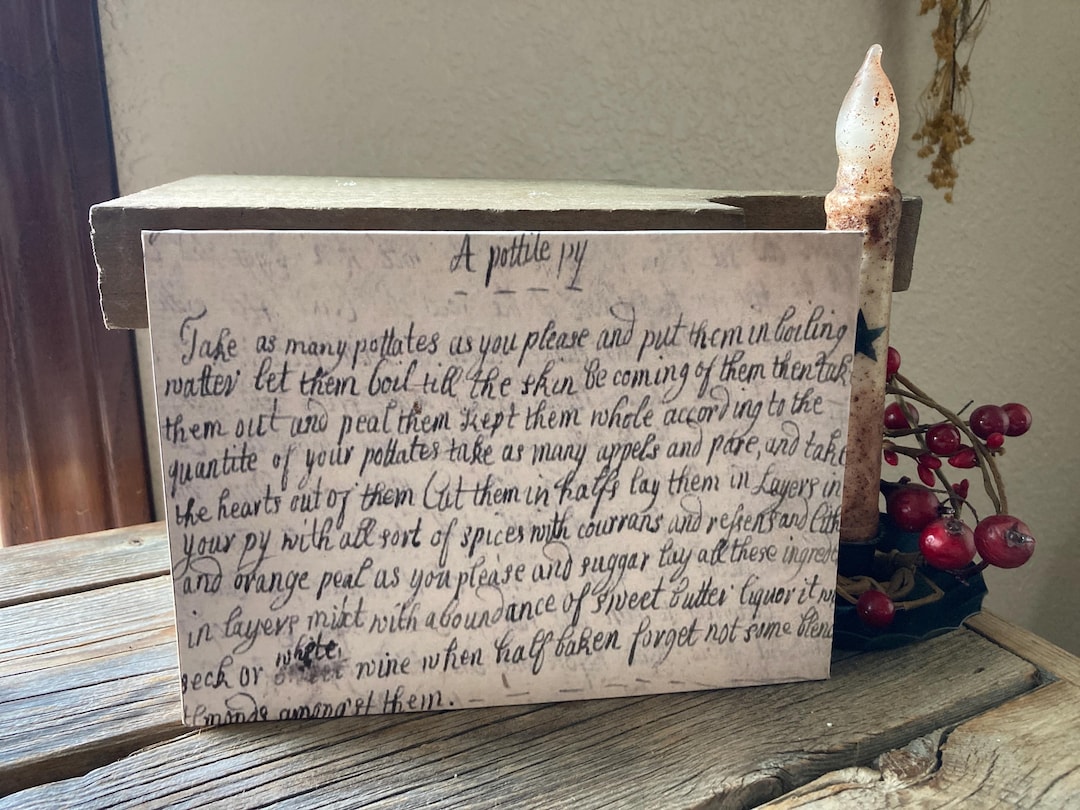 A pottile py
Take as many pottates as you please and put them in boiling
watter let them boil till the skin be coming of them then tak
them out and peal them kept them whole according to the
quantite of your pottates take as many appels and pare, and take
the hearts out of them Cut them in halfs lay them in Layers in
your py with all sort of spices with courrans and resens and
and orange peal as you please and suggar lay all these ingred
in layers mixt with aboundance of sweet butter liquor it
seck or white, wine when half baken forget not some blen
almonds amongst them.